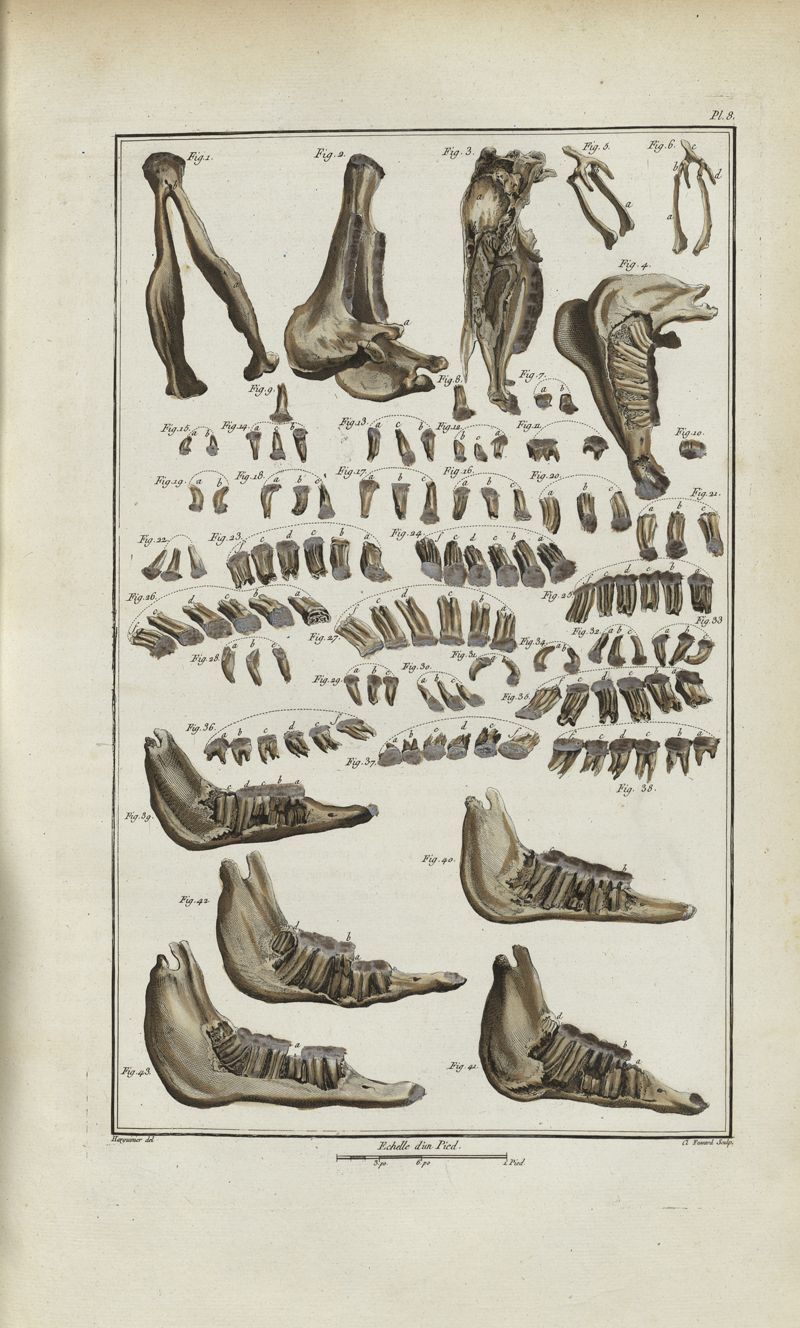 Pl. 8.
Fig. 1.
b
a
Fig. 2.
a
Fig. 3.
a
Fig. 5.
a
Fig. 6.
c
b
d
a
Fig. 4.
Fig. 9.
Fig. 8.
Fig. 7.
a b
Fig. 15.
a b
Fig. 14.
a c b
Fig. 13.
a c b
Fig. 12.
b c a
Fig. 11.
Fig. 10.
Fig. 19.
a b
Fig. 18.
a b c
Fig. 17.
a b c
Fig. 16.
a b c
Fig. 20.
a b c
Fig. 21.
a b c
Fig. 22.
Fig. 23.
f e d c b a
Fig. 24.
f e d c b a
Fig. 25.
f e d c b a
Fig. 26.
f e d c b a
Fig. 27.
f e d c b a
Fig. 28.
a b c
Fig. 29.
a b c
Fig. 30.
a b c
Fig. 31.
a b
Fig. 34.
a b
Fig. 32.
a b c
Fig. 33
a b c
Fig. 35.
f e d c b a
Fig. 36.
a b c d e f
Fig. 37.
a b c d e f
Fig. 38.
f e d c b a
Fig. 39.
e d c b a
Fig. 40.
c b
a
Fig. 42.
d b
a
Fig. 43.
a
Fig. 41.
d b
a
Harguinier del.
Echelle d'un Pied.
Cl. Fessard Sculp.
3. po. 6. po 1. Pied.